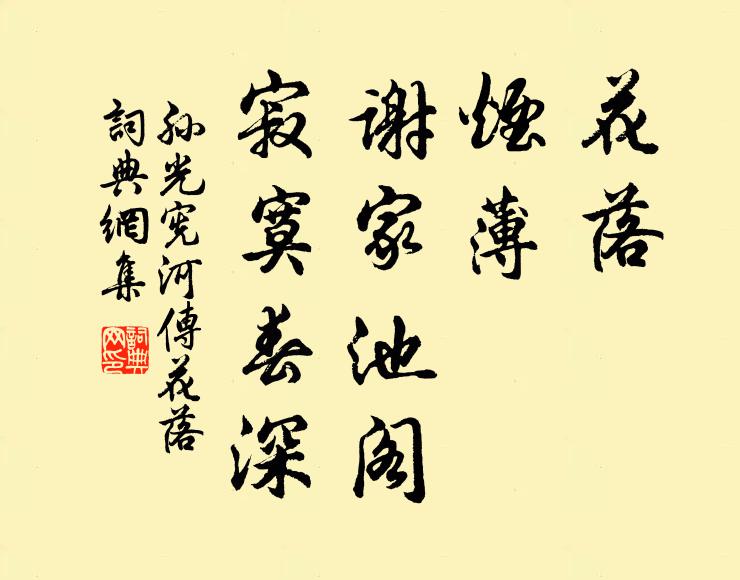 花落
煙薄
謝家池阁
寂寞春深
孙光宪河傳花落
詞典網集
詞典網印